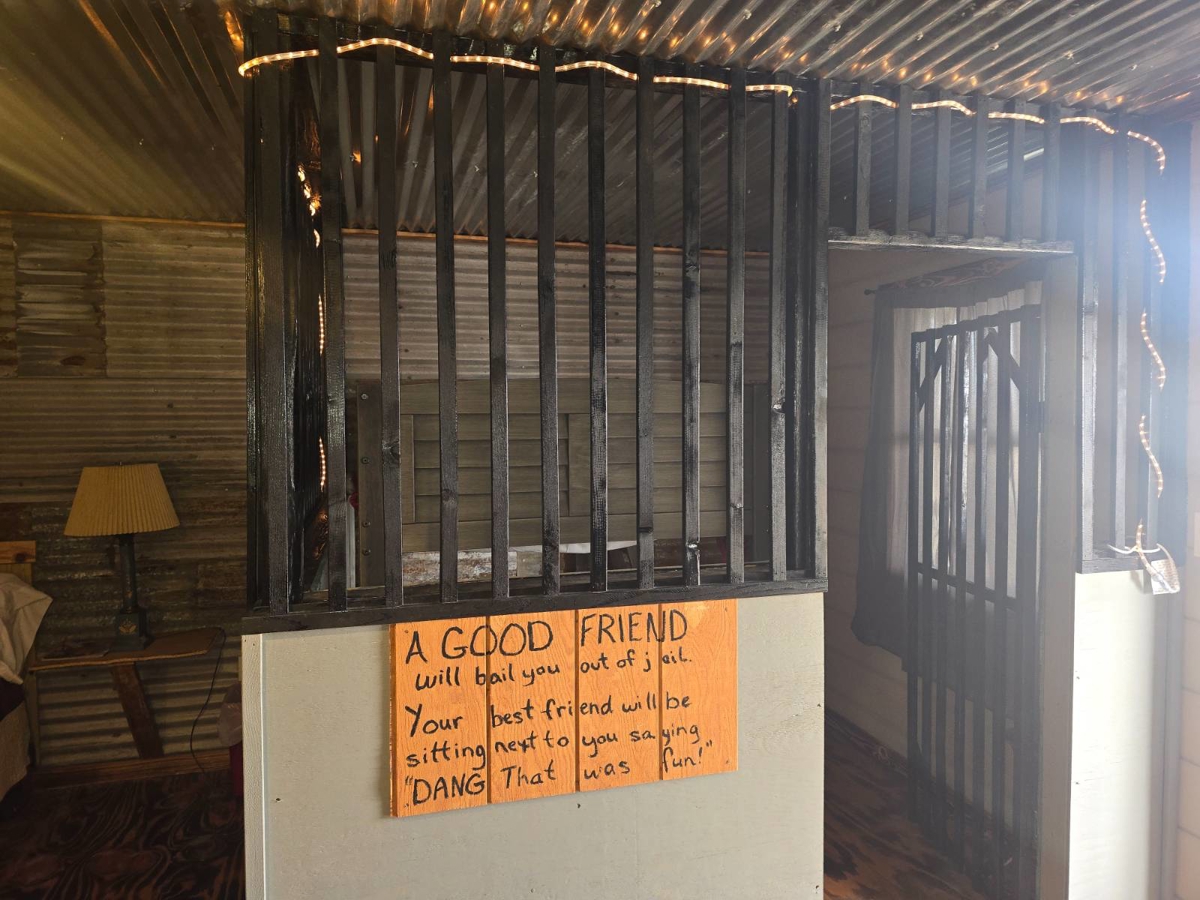 A GOOD FRIEND
will bail you out of jail.
Your best friend will be
sitting next to you saying
"DANG That was fun!"